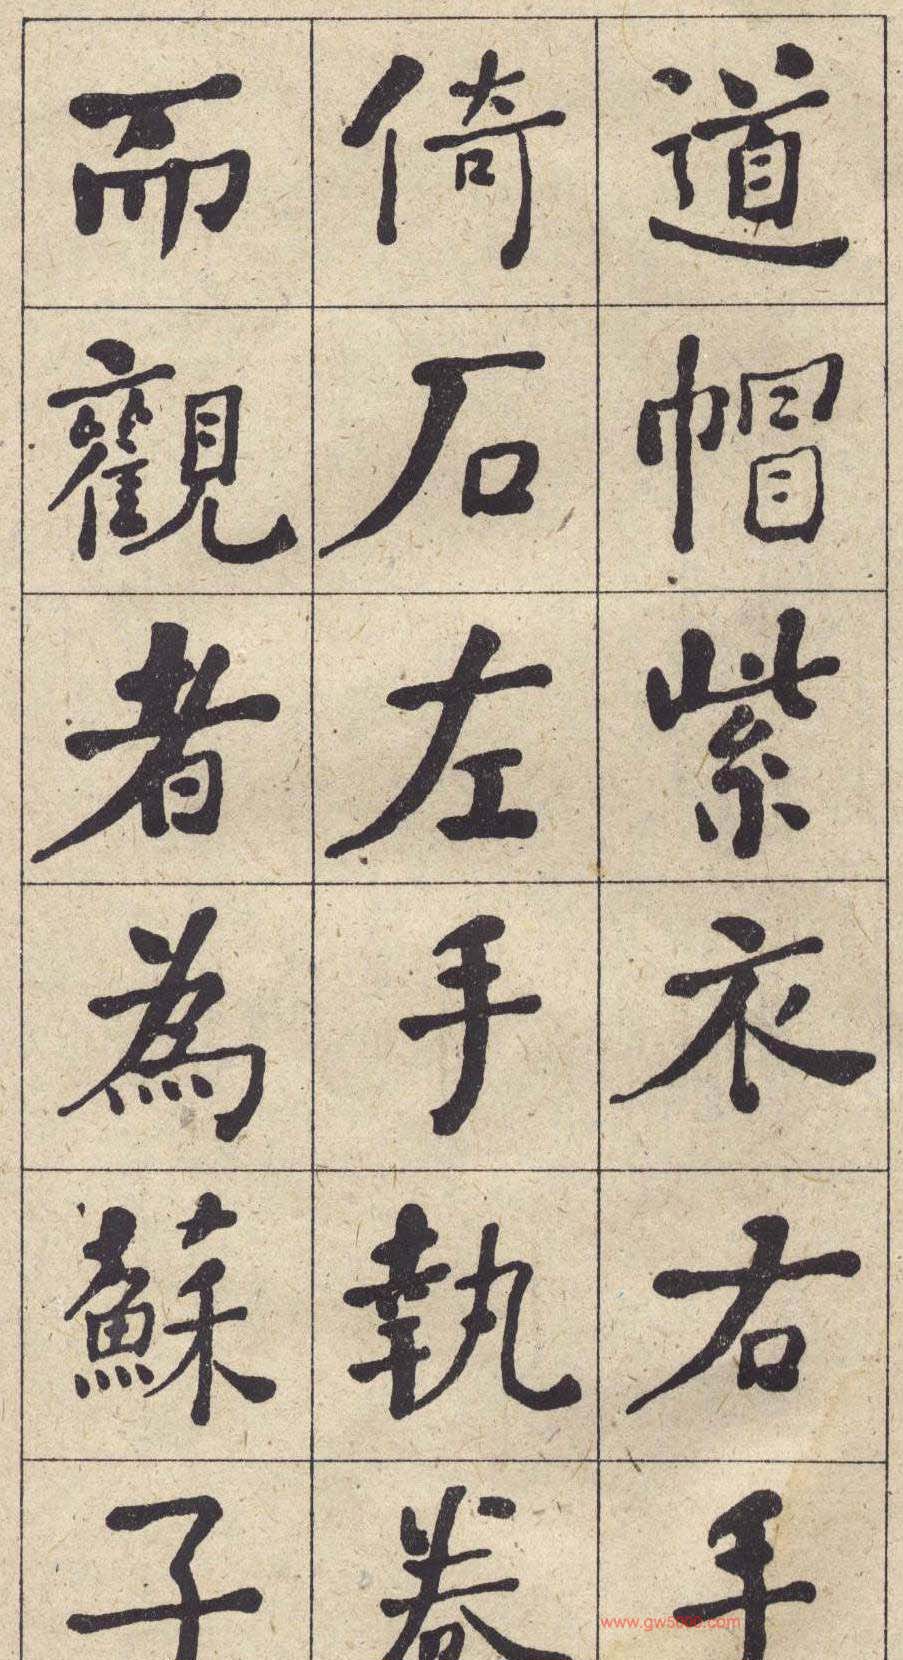 道帽紫衣右手
倚石左手執卷
而觀者為蘇子
www.gw5000.com